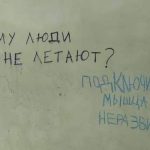 МУ ЛЮДИ
НЕ ЛЕТАЮТ?
ПОДКЛЮЧИ
МЫШЦА
НЕРАЗВИ